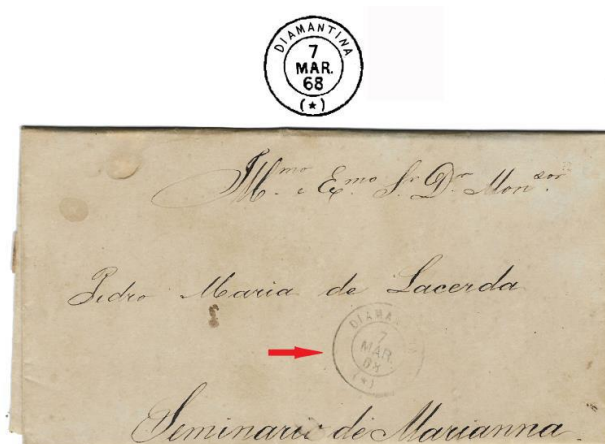 DIAMANTINA
7
MAR.
68
(★)
Ill.mo e Ex.mo Sr. Dr. Mon.sor
Pedro Maria de Lacerda
DIAMAN
7
MAR.
68
(★)
Seminario de Marianna.